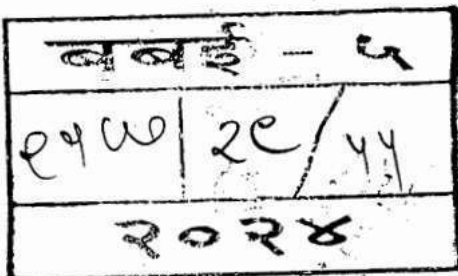 बबई - ५
१५७७ २९/५५
२०२४